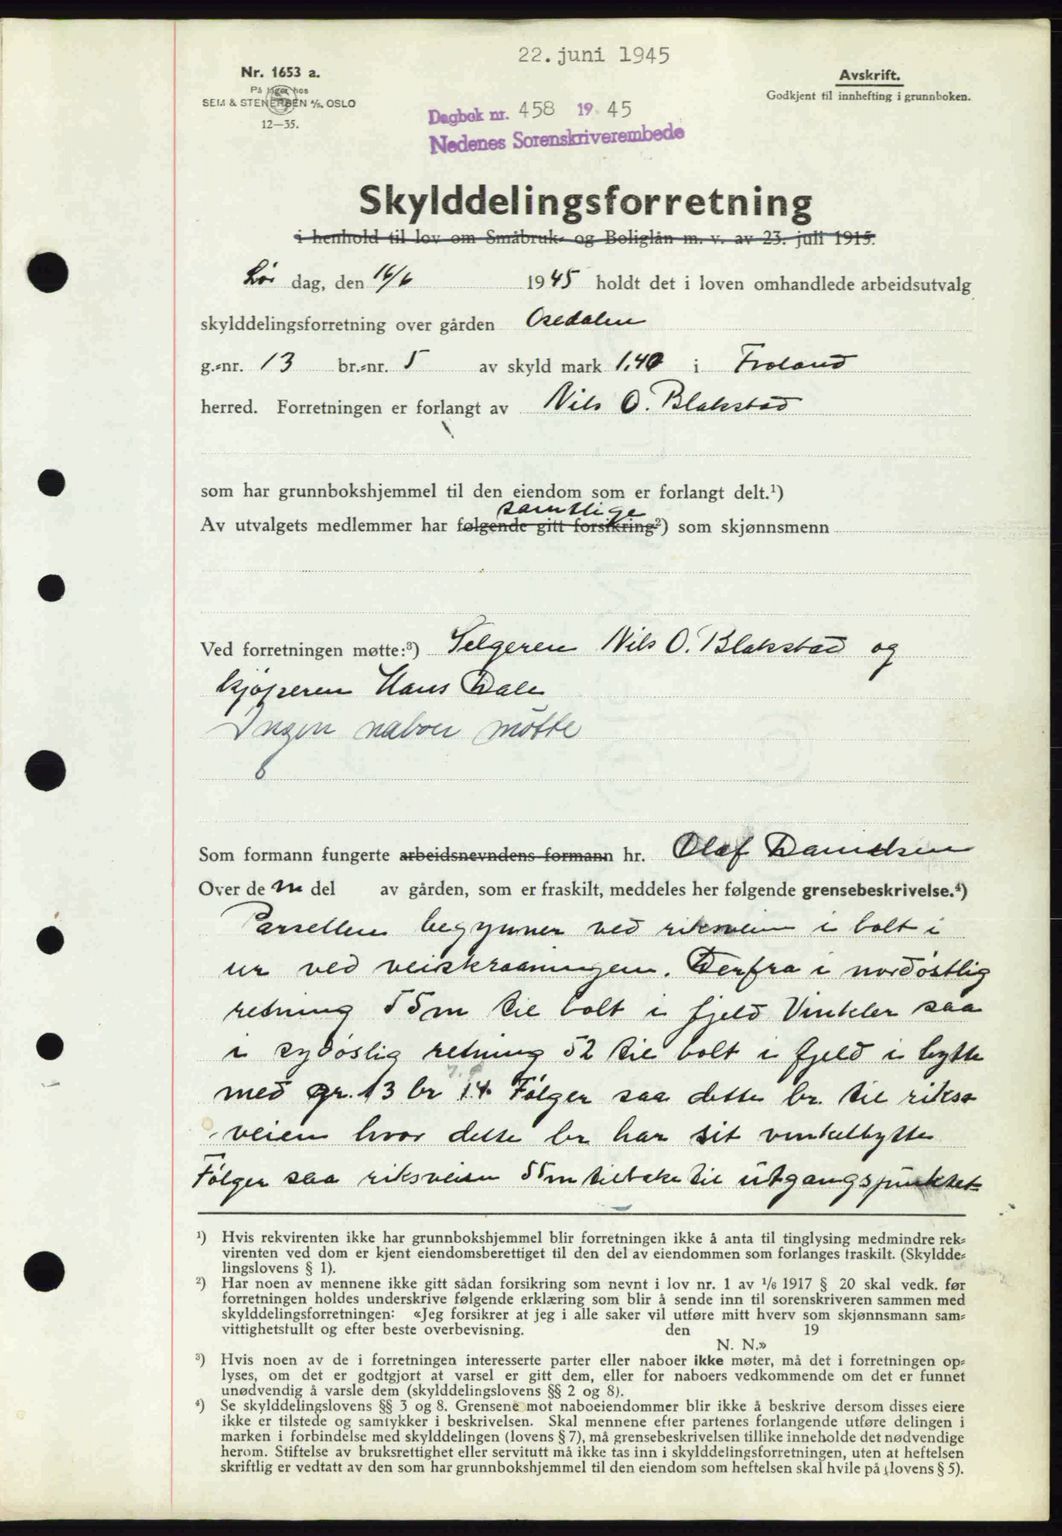 22. juni 1945
Nr. 1653 a.
På lager hos
SEM & STENERSEN A/S. OSLO
12—35.
Avskrift.
Godkjent til innhefting i grunnboken.
Dagbok nr. 458 1945
Nedenes Sorenskriverembede
Skylddelingsforretning
i henhold til lov om Småbruk- og Boliglån m. v. av 23. juli 1915.
Lør dag, den 16/6 1945 holdt det i loven omhandlede arbeidsutvalg
skylddelingsforretning over gården Osedalen
g.-nr. 13 br.-nr. 5 av skyld mark 1,40 i Froland
herred. Forretningen er forlangt av Nils O. Blakstad
som har grunnbokshjemmel til den eiendom som er forlangt delt.¹)
samtlige
Av utvalgets medlemmer har følgende gitt forsikring²) som skjønnsmenn
Ved forretningen møtte:³) Selgeren Nils O. Blakstad og
kjøperen Hans Dale
Ingen naboer møtte
Som formann fungerte arbeidsnevndens formann hr. Olaf Danielsen
Over de n del av gården, som er fraskilt, meddeles her følgende grensebeskrivelse.⁴)
Parsellen begynner ved riksveien i bolt i
ur ved veiskraaningen. Derfra i nordøstlig
retning 55m til bolt i fjeld Vinkler saa
i sydøslig retning 52 til bolt i fjeld i bytte
med gr. 13 br 14. Følger saa dette br. til riks-
veien hvor dette br har sit vinkelbytte
Følger saa riksveien 55m tilbake til utgangspunktet
¹) Hvis rekvirenten ikke har grunnbokshjemmel blir forretningen ikke å anta til tinglysing medmindre rek-
virenten ved dom er kjent eiendomsberettiget til den del av eiendommen som forlanges fraskilt. (Skyldde-
lingslovens § 1).
²) Har noen av mennene ikke gitt sådan forsikring som nevnt i lov nr. 1 av 1/6 1917 § 20 skal vedk. før
forretningen holdes underskrive følgende erklæring som blir å sende inn til sorenskriveren sammen med
skylddelingsforretningen: «Jeg forsikrer at jeg i alle saker vil utføre mitt hverv som skjønnsmann sam-
vittighetsfullt og efter beste overbevisning. den 19
N. N.»
³) Hvis noen av de i forretningen interesserte parter eller naboer ikke møter, må det i forretningen op-
lyses, om det er godtgjort at varsel er gitt dem, eller for naboers vedkommende om det er funnet
unødvendig å varsle dem (skylddelingslovens §§ 2 og 8).
⁴) Se skylddelingslovens §§ 3 og 8. Grensene mot naboeiendommer blir ikke å beskrive dersom disses eiere
ikke er tilstede og samtykker i beskrivelsen. Skal mennene efter partenes forlangende utføre delingen i
marken i forbindelse med skylddelingen (lovens § 7), må grensebeskrivelsen tillike inneholde det nødvendige
herom. Stiftelse av bruksrettighet eller servitutt må ikke tas inn i skylddelingsforretningen, uten at heftelsen
skriftlig er vedtatt av den som har grunnbokshjemmel til den eiendom som heftelsen skal hvile på (lovens § 5).